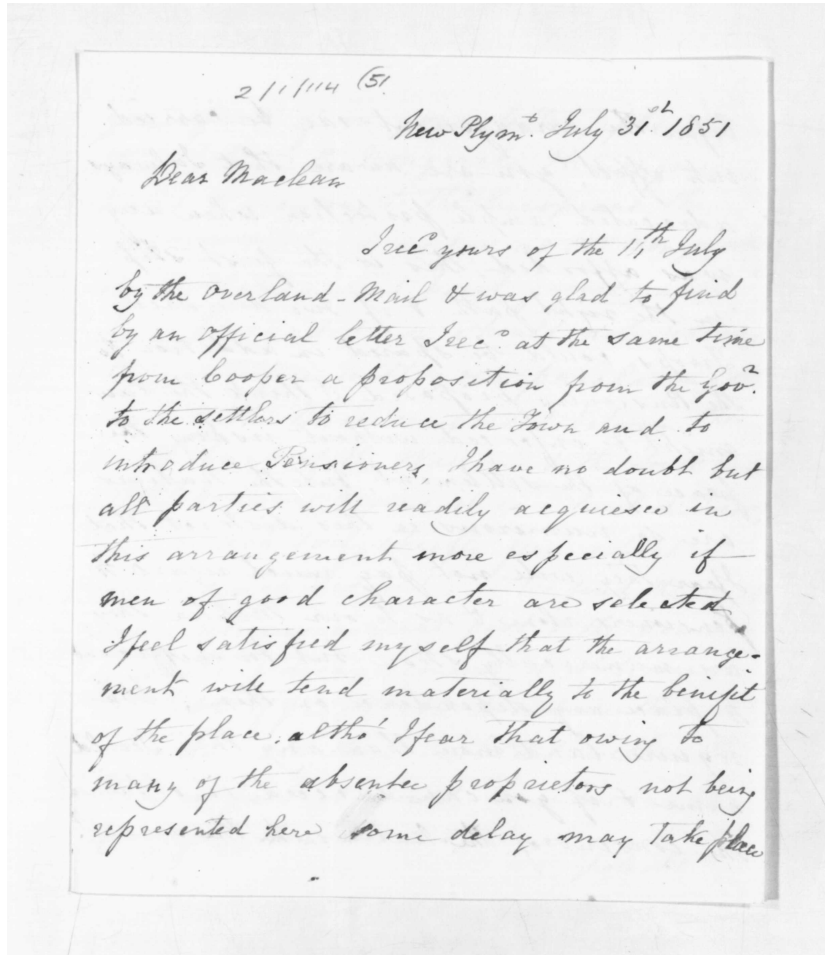 2/1/114 (51
New Plymo. July 31st. 1851
Dear Maclean
I recd yours of the 11th July
by the overland-Mail & was glad to find
by an official letter I recd. at the same time
from Cooper a proposition from the Govr.
to the settlers to reduce the Town and to
introduce Pensioners, I have no doubt but
all parties will readily acquiesce in
this arrangement more especially if
men of good character are selected
I feel satisfied myself that the arrange-
ment will tend materially to the benifit
of the place, altho' I fear that owing to
many of the absentee proprietors not being
represented here some delay may take place